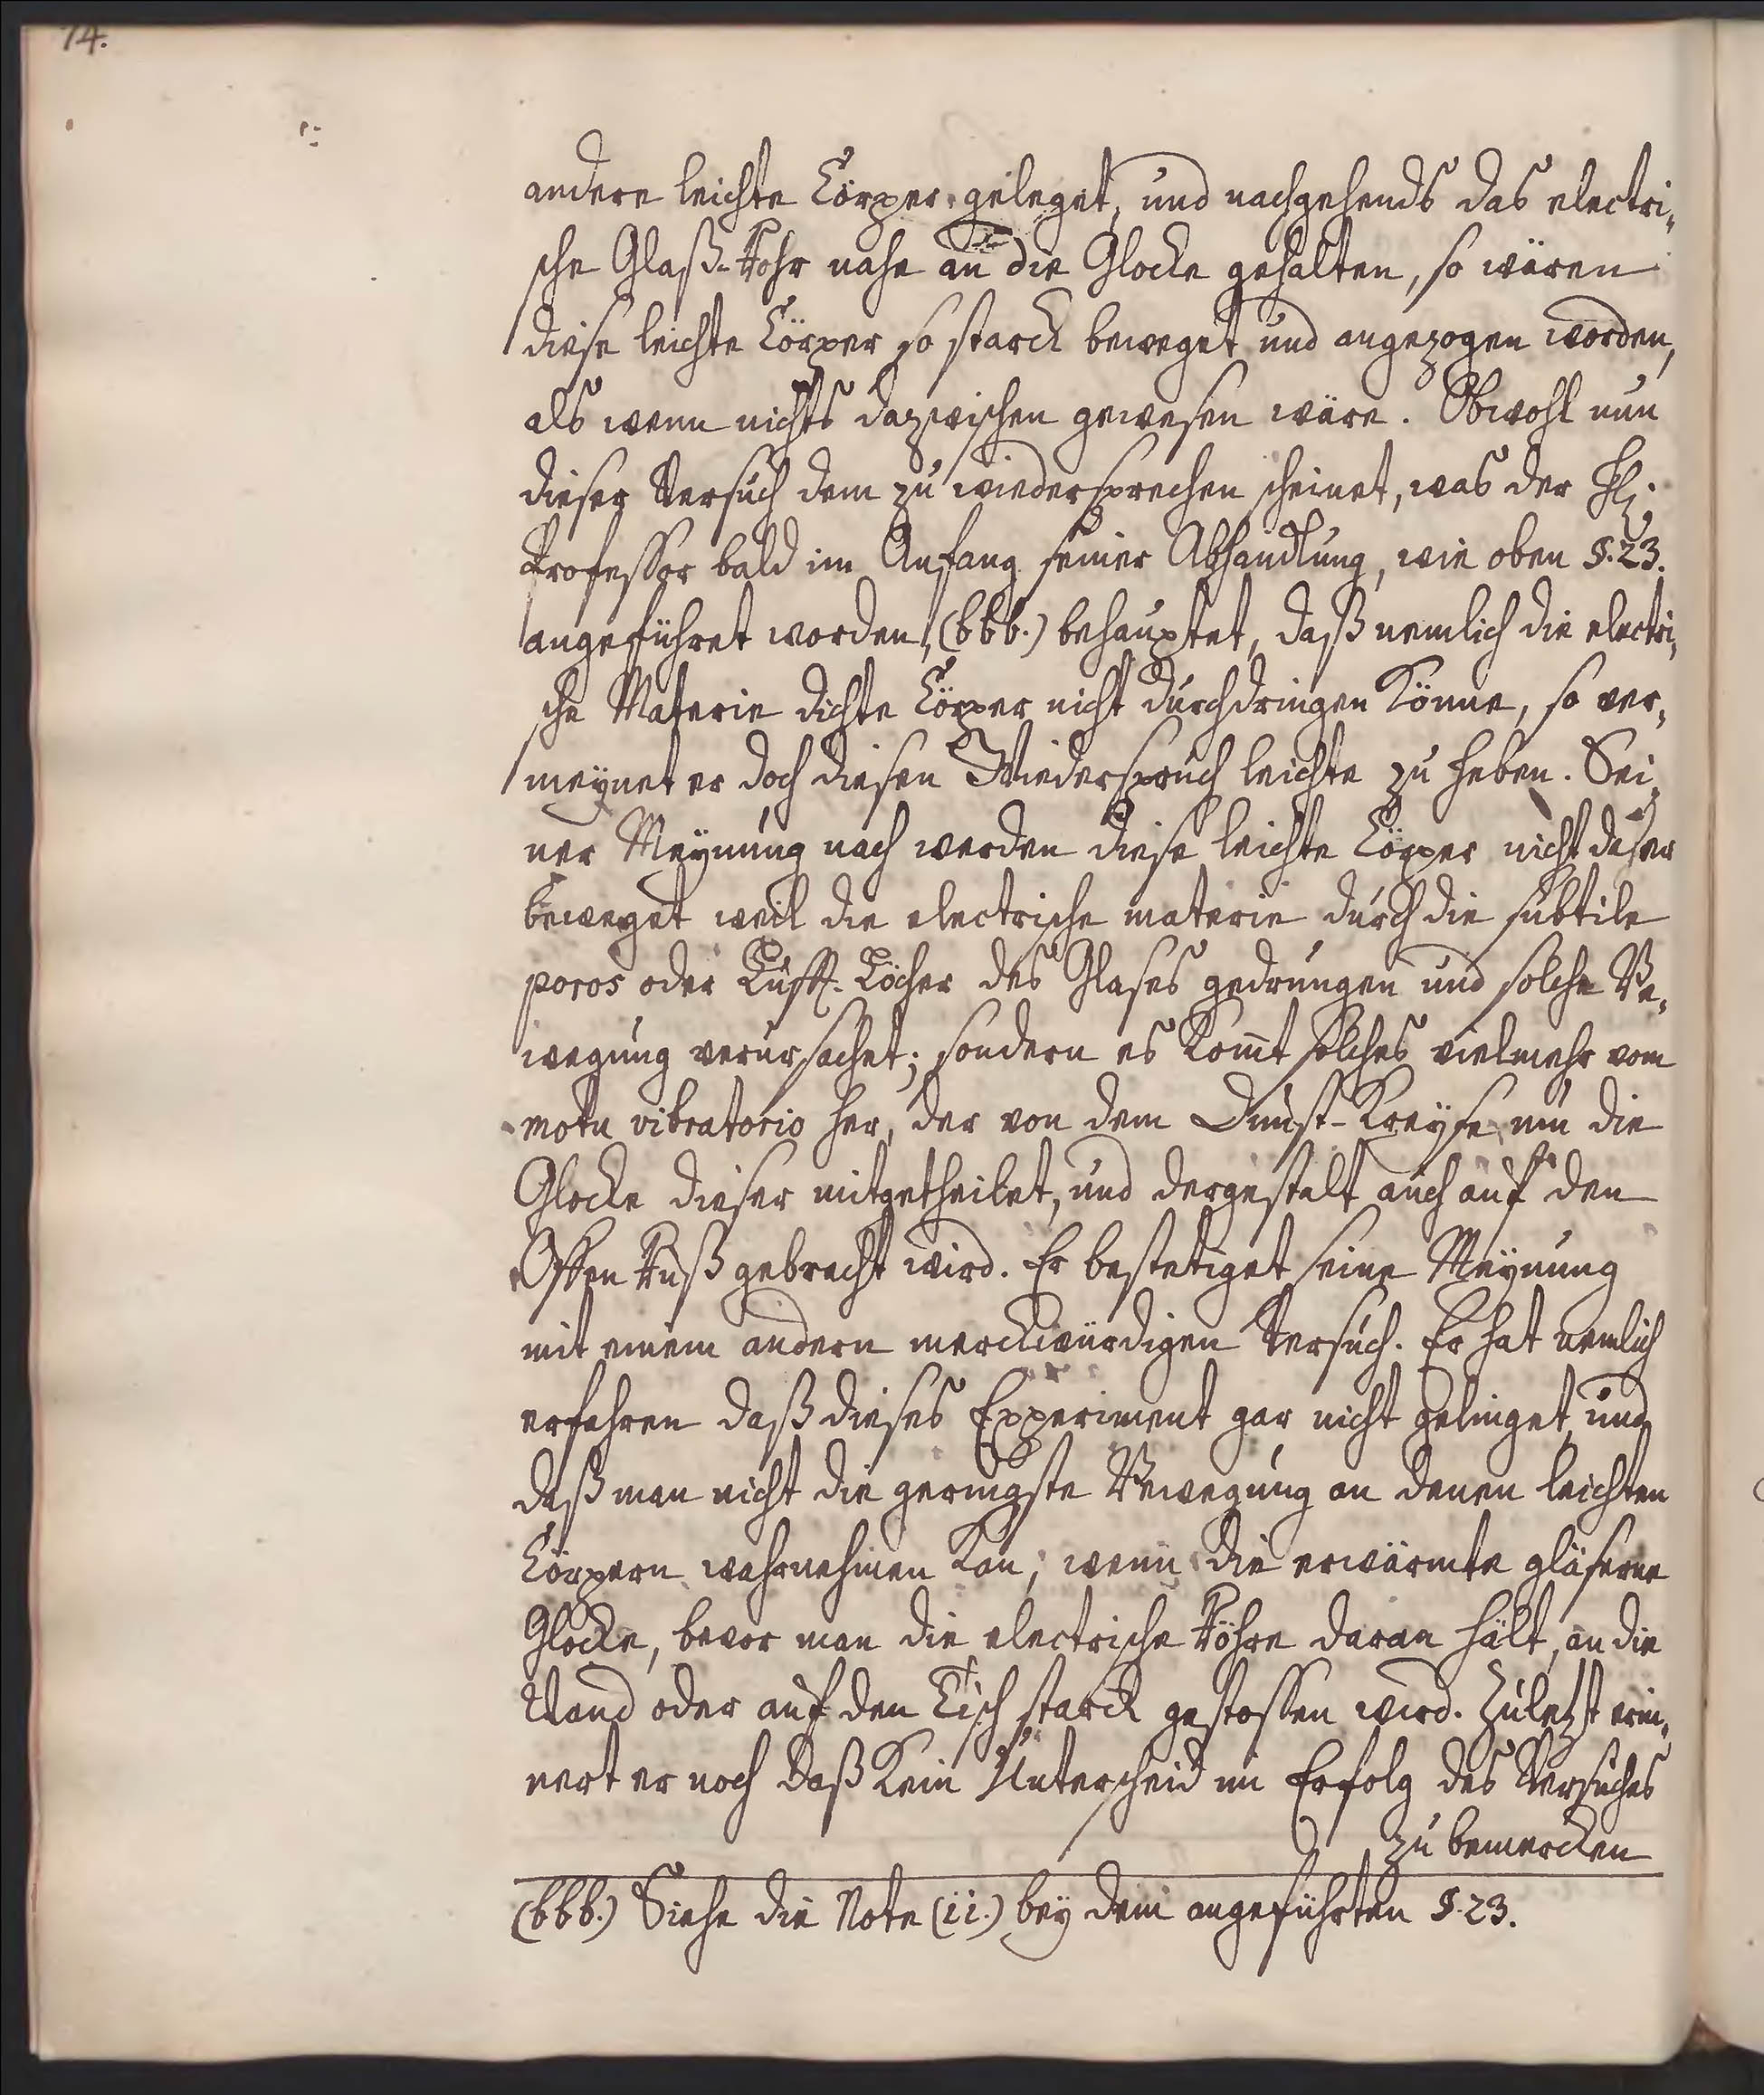 74.
andere leichte Cörper geleget, und nachgehends das electri,
sche Glaß-Rohr nahe an die Glocke gehalten, so wären
diese leichte Cörper so starck beweget und angezogen worden,
als wenn nichts dazwischen gewesen wäre. Obwohl nun
dieser Versuch dem zu wiedersprechen scheinet, was der
Professor bald im Anfang seiner Abhandlung, wie oben §. 23.
angeführet worden, (bbb.) behauptet, daß nemlich die electri,
sche Materie dichte Cörper nicht durchdringen könne, so ver,
meynet er doch diesen Wiederspruch leichte zu heben. Sei,
ner Meynung nach werden diese leichte Cörper nicht daher
beweget weil die electrische materie durch die subtile
poros oder Lufft-Löcher des Glases gedrungen und solche Be,
wegung verursachet; sondern es komt solches vielmehr vom
motu vibratorio her, der von dem Dunst-Kreyse um die
Glocke dieser mitgetheilet, und dergestalt auch auf den
Offen Ruß gebracht wird. Er bestetiget seine Meynung
mit einem andern merckwürdigen Versuch. Er hat nemlich
erfahren daß dieses Experiment gar nicht gelinget, und
daß man nicht die geringste Bewegung an denen leichten
Cörpern wahrnehmen kan, wenn die erwärmte gläserne
Glocke, bevor man die electrische Röhre daran hält, an die
Wand oder auf den Tisch starck gestossen wird. Zuletzt erin,
nert er noch daß kein Unterscheid im Erfolg des Versuches
zu bemercken
(bbb.) Siehe die Note (ii.) bey dem angeführten §. 23.